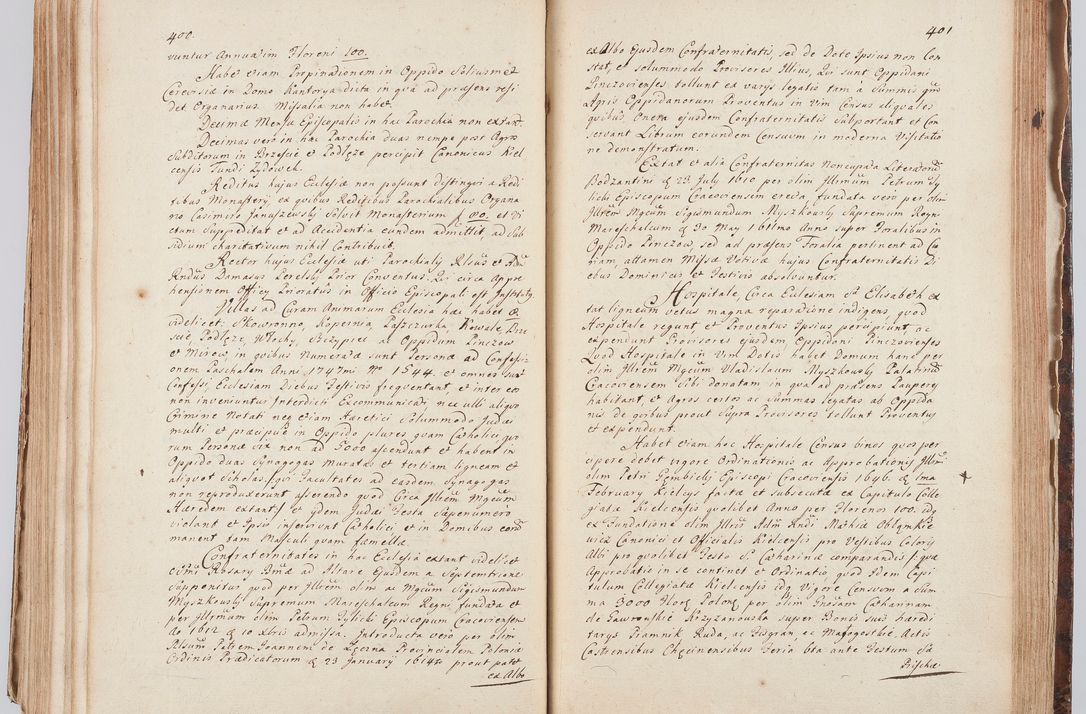 400.
vuntur Annuatim Floreni 100.
Habet etiam Propinationem in Oppido Soliusmet
Cerevisiæ in Domo Kantorya dicta in qva ad præsens resi
det Organarius. Missalia non habet.
Decimæ Mensæ Episcopalis in hac Parochia non extant.
Decimas vero in hac Parochia duas nempe post Agros
Subditorum in Brzeście et Podłęże percipit Canonicus Kiel
censis Fundi Zydowek.
Reditus hujus Ecclesiæ non possunt distingvi a Redi
tibus Monastery, ex qvibus Reditibus Parochialibus Organa
rio Casimiro Januszewsky solvit Monasterium f 80. et Vi
ctum suppeditat et ad Accidentia eundem admittit, ad Sub
sidium charitativum nihil Contribuit.
Rector hujus Ecclesiæ uti Parochialis Relius et Adm
Rndus Damasus Perelsky Prior Conventus. Qui circa Appre
hensionem Officy Prioratus in Officio Episcopali est Institutus.
Villas ad Curam Animarum Ecclesia hæc habet 8
videlicet: Skowronno, Kopernia, Paszczurka, Kowale, Brze
ście, Podłęże, Włochy, Krzypiec ac Oppidum Pinczow
et Mirow, in qvibus Numeratæ sunt Personæ ad Confessi
onem Paschalem Anni 1747mi No 1544. et omnes sunt
Confessi, Ecclesiam Diebus Festivis freqventant et inter eos
non inveniuntur Interdicti, Excommunicati, nec ulli aliqvo
Crimine Notati neq etiam Hæretici Solummodo Judæi
multi et præcipuè in Oppido plures qvam Catholici qvo
rum Personæ vix non ad 5000 ascendunt et habent in
Oppido duas Synagogas muratas et tertiam ligneam et
aliqvot Scholas, qvi Facultates ad easdem Synagogas
non reproduxerunt asserendo qvod Circa Illrem Mgcum
Hæredem extant, et ydem Judæi Festa sæpenumerò
violant et Ipsis inserviunt Catholici et in Domibus eorum
manent tam Masculi qvam fœmellæ.
Confraternitates in hac Ecclesia extant videlicet
SSmi Rosary Bmæ ad Altare Ejusdem a Septemtrione
supponitur qvod per Illrem olim ac Mgcum Sigismundum
Myszkowsky Supremum Mareschalcum Regni fundata et
per Illmum olim Petrum Tylicky Episcopum Cracoviensem
Ao 1612 d 10 Xbris admissa. Introducta vero per olim
Rlsum Patrem Joannem de Łęczna Provincialem Poloniæ
Ordinis Prædicatorum d 23 January 1614to prout patet
ex Albo
401
ex Albo Ejusdem Confraternitatis, sed de Dote Ipsius non Con
stat, et solummodo Provisores Illius, Qui sunt Oppidani
Pinczovienses tollunt ex varys legatis tam a Summis qvam
Agris Oppidanorum Proventus in Vim Census aliqvales
qvibus Onera ejusdem Confraternitatis Supportant et Con
servant Librum eorundem Censuum in moderna Visitatio
ne demonstratum.
Extat et alia Confraternitas Noncupata Literatorum
Bodzantini d 23 July 1610 per olim Illrmum Petrum Ty
licki Episcopum Cracoviensem erecta, fundata vero per olim
Illrem Mgcum Sigismundum Myszkowsky Supremum Regni
Mareschalcum d 30 May 1611mo Anno super Foralibus in
Oppido Pinczow, sed ad præsens Foralia pertinent ad Cu
riam, attamen Missæ Votivæ hujus Confraternitatis Di
ebus Dominicis et Festivis absolvuntur.
Hospitale, Circa Ecclesiam St Elisabeth ex
tat ligneum vetus magna reparatione indigens, qvod
Hospitale regunt et Proventus Ipsius percipiunt, ac
expendunt Provisores ejusdem Oppidani Pinczovienses
Qvod Hospitale in Vim Dotis habet Domum hanc per
olim Illrem Mgcum Vladislaum Myszkowsky Palatinum
Cracoviensem sibi donatam in qva ad præsens Pauperes
habitant, et Agros certos ac Summas legatas ab Oppida
nis de qvibus prout supra Provisores tollunt Proventus
et expendunt.
Habet etiam hoc Hospitale Census binos qvos per
cipere debet vigore Ordinationis ac Approbationis Illmi
olim Petri Gembicky Episcopi Cracoviensis 1646. d 1ma
February Kielcys factæ et subsecutæ ex Capitulo Colle
giatæ Kielcensis qvolibet Anno per Florenos 100. idq
ex Fundatione olim Illris Adm Rndi Mathiæ Obłąmkie
wicz Canonici et Officialis Kielcensis pro Vestibus Coloris
Albi pro qvolibet Festo St Catharinæ comparandis, qvæ
Approbatio in se continet et Ordinatio, qvod Idem Capi
tulum Collegiatæ Kielcensis idq Vigore Censuum a Sum
ma 3000 Flor Polon per olim Gnosam Catharinam
de Gawronskie Krzyzanowska super Bonis suis hæredi
tarys Piamnik Ruda, ac Gisgran, ac Mafogoskie Actis
Castrensibus Chęcinensibus Feria 6ta ante Festum Sæ
Priscæ